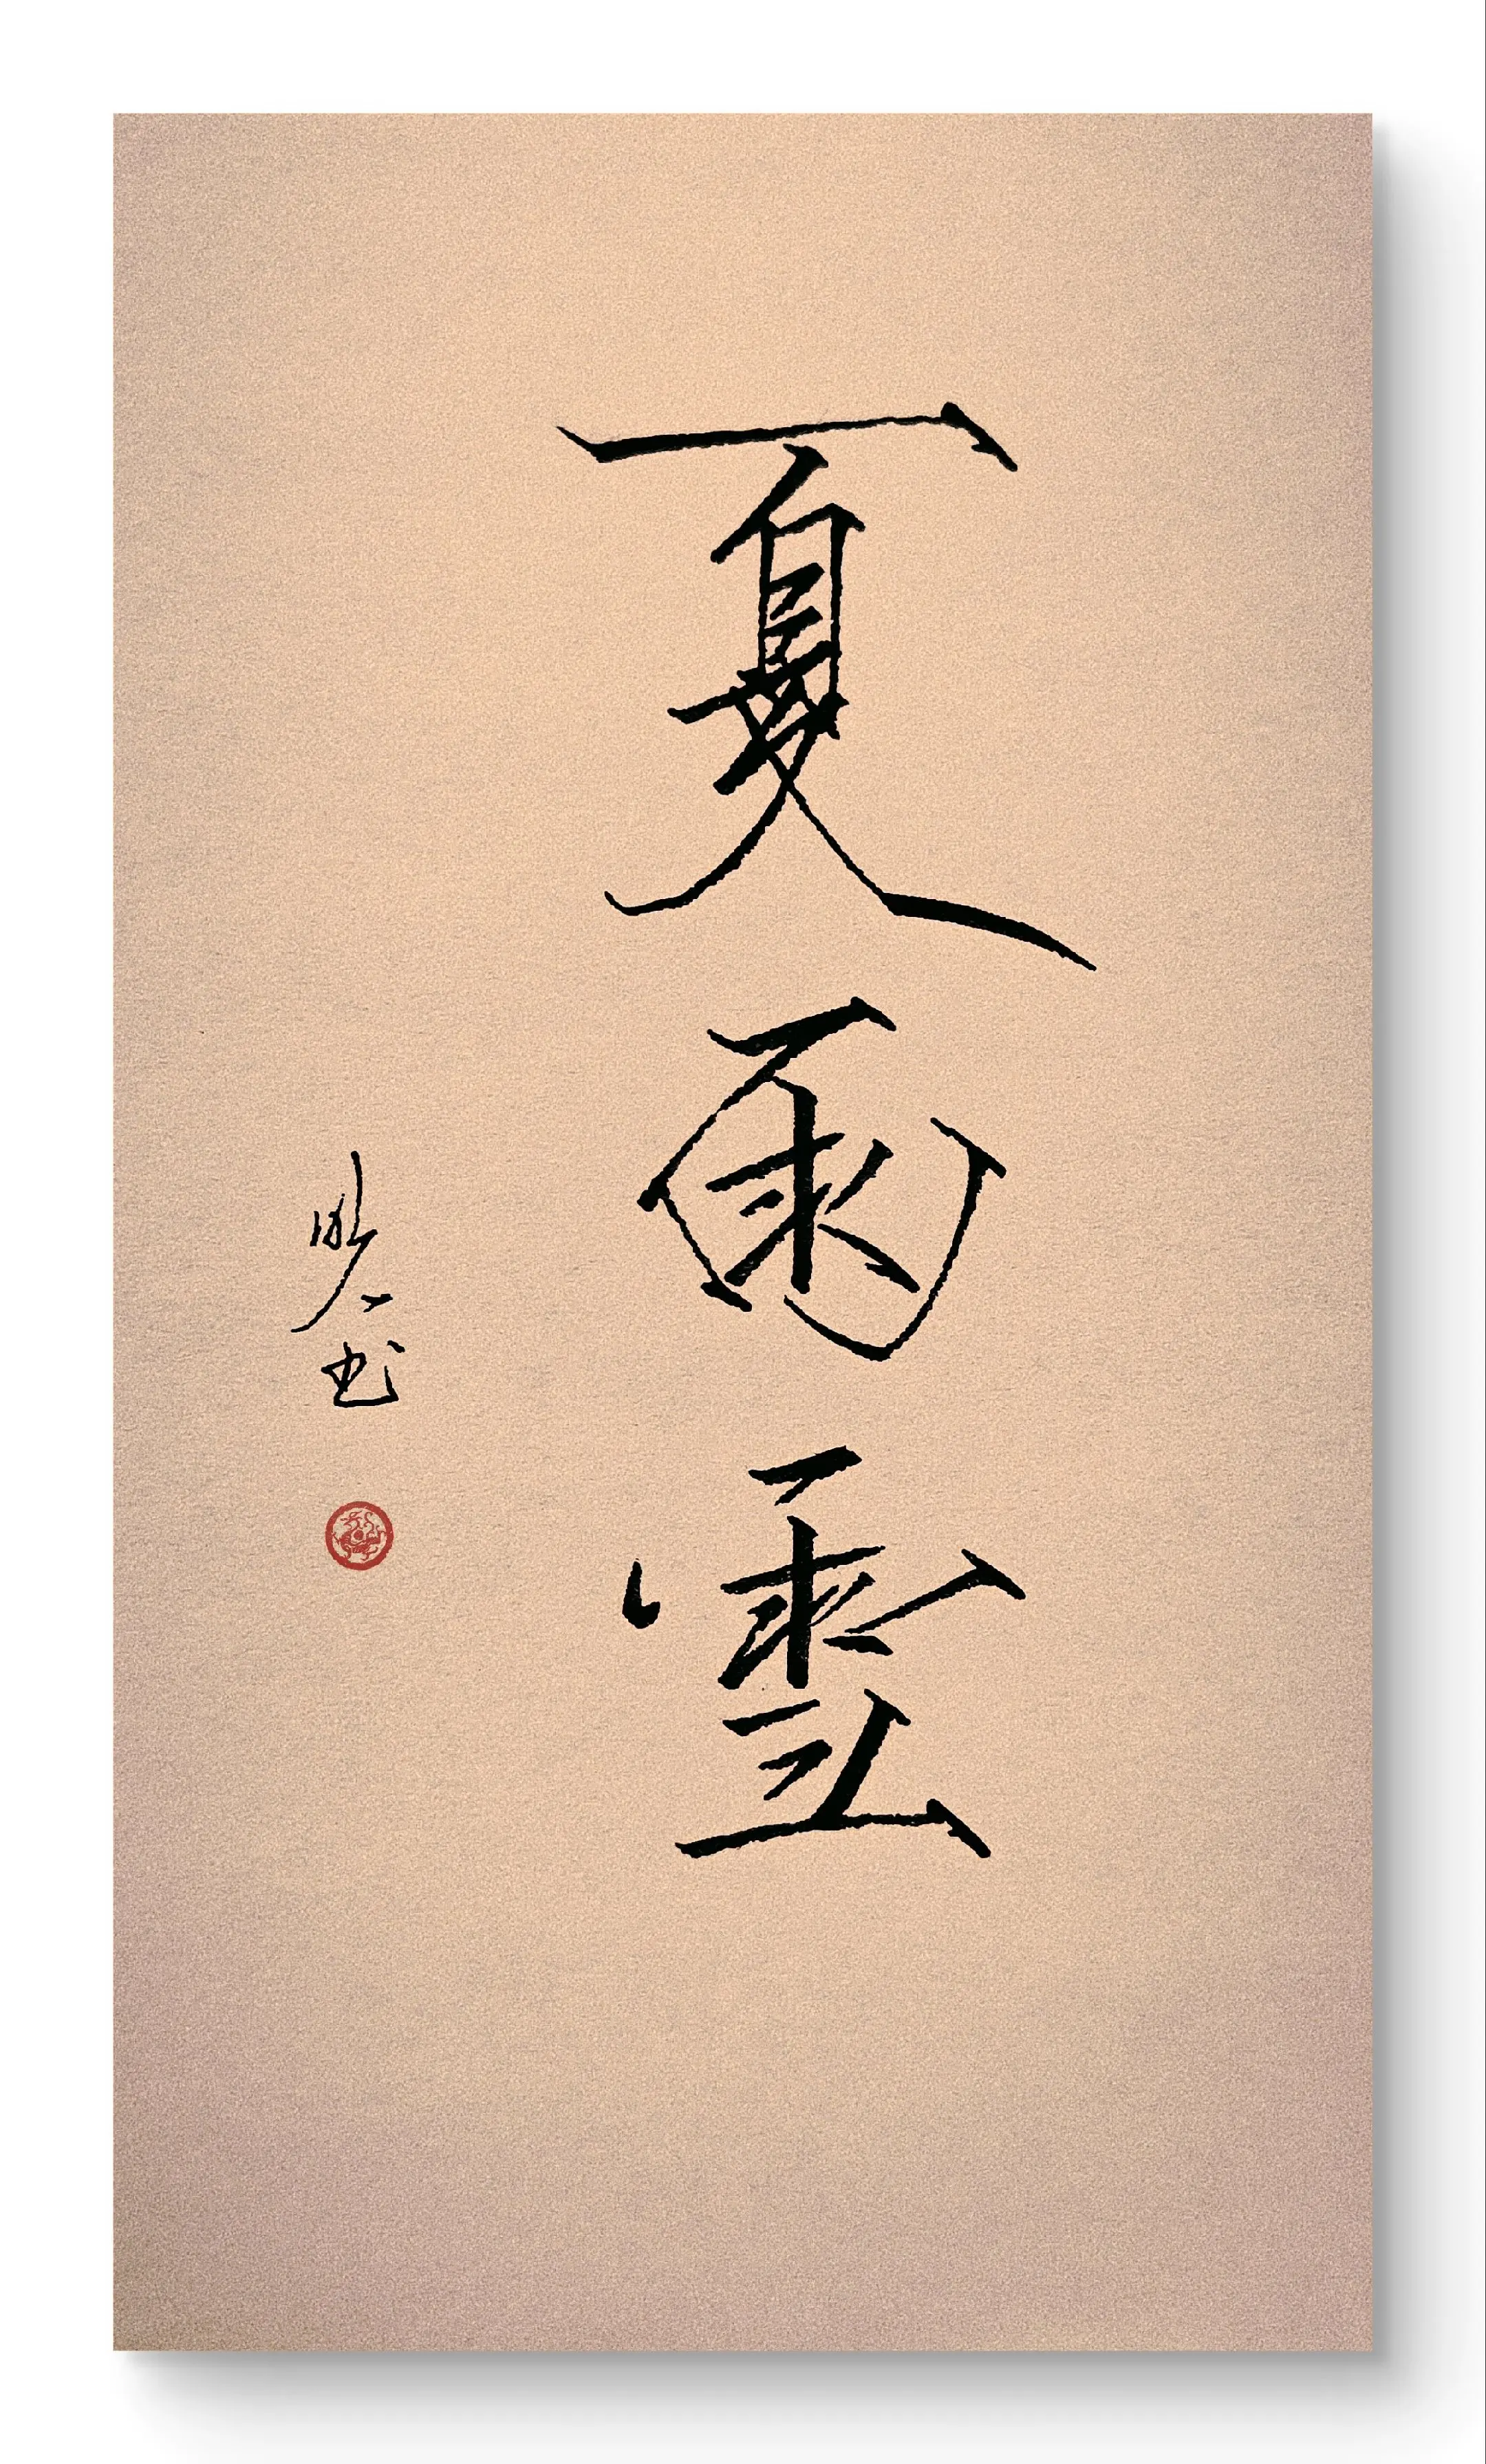 夏雨雲